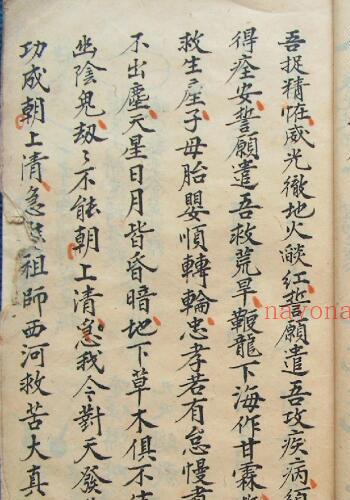 吾捉精怪威光徹地火燄紅誓願遣吾攻疾病
得痊安誓願遣吾救荒旱鞭龍下海作甘霖
救生產子母胎嬰順轉輪忠孝若有怠慢
不出塵天星日月皆昏暗地下草木俱不
幽陰鬼劫々不能朝上清急我今對天發
功成朝上清急急祖師西河救苦大真
nayona